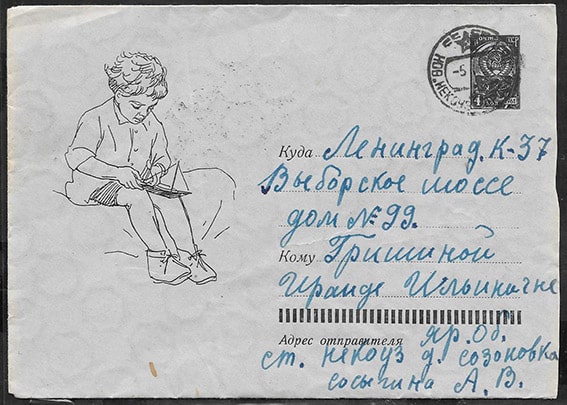 ПОЧТА СССР
4
-5
НЕКОУЗ
Куда Ленинград. К-37
Выборское шоссе
дом № 99.
Кому Гришиной
Ираиде Ильиничне
Адрес отправителя яр. Об.
ст. Некоуз д. Созоновка
Сосыгина А. В.